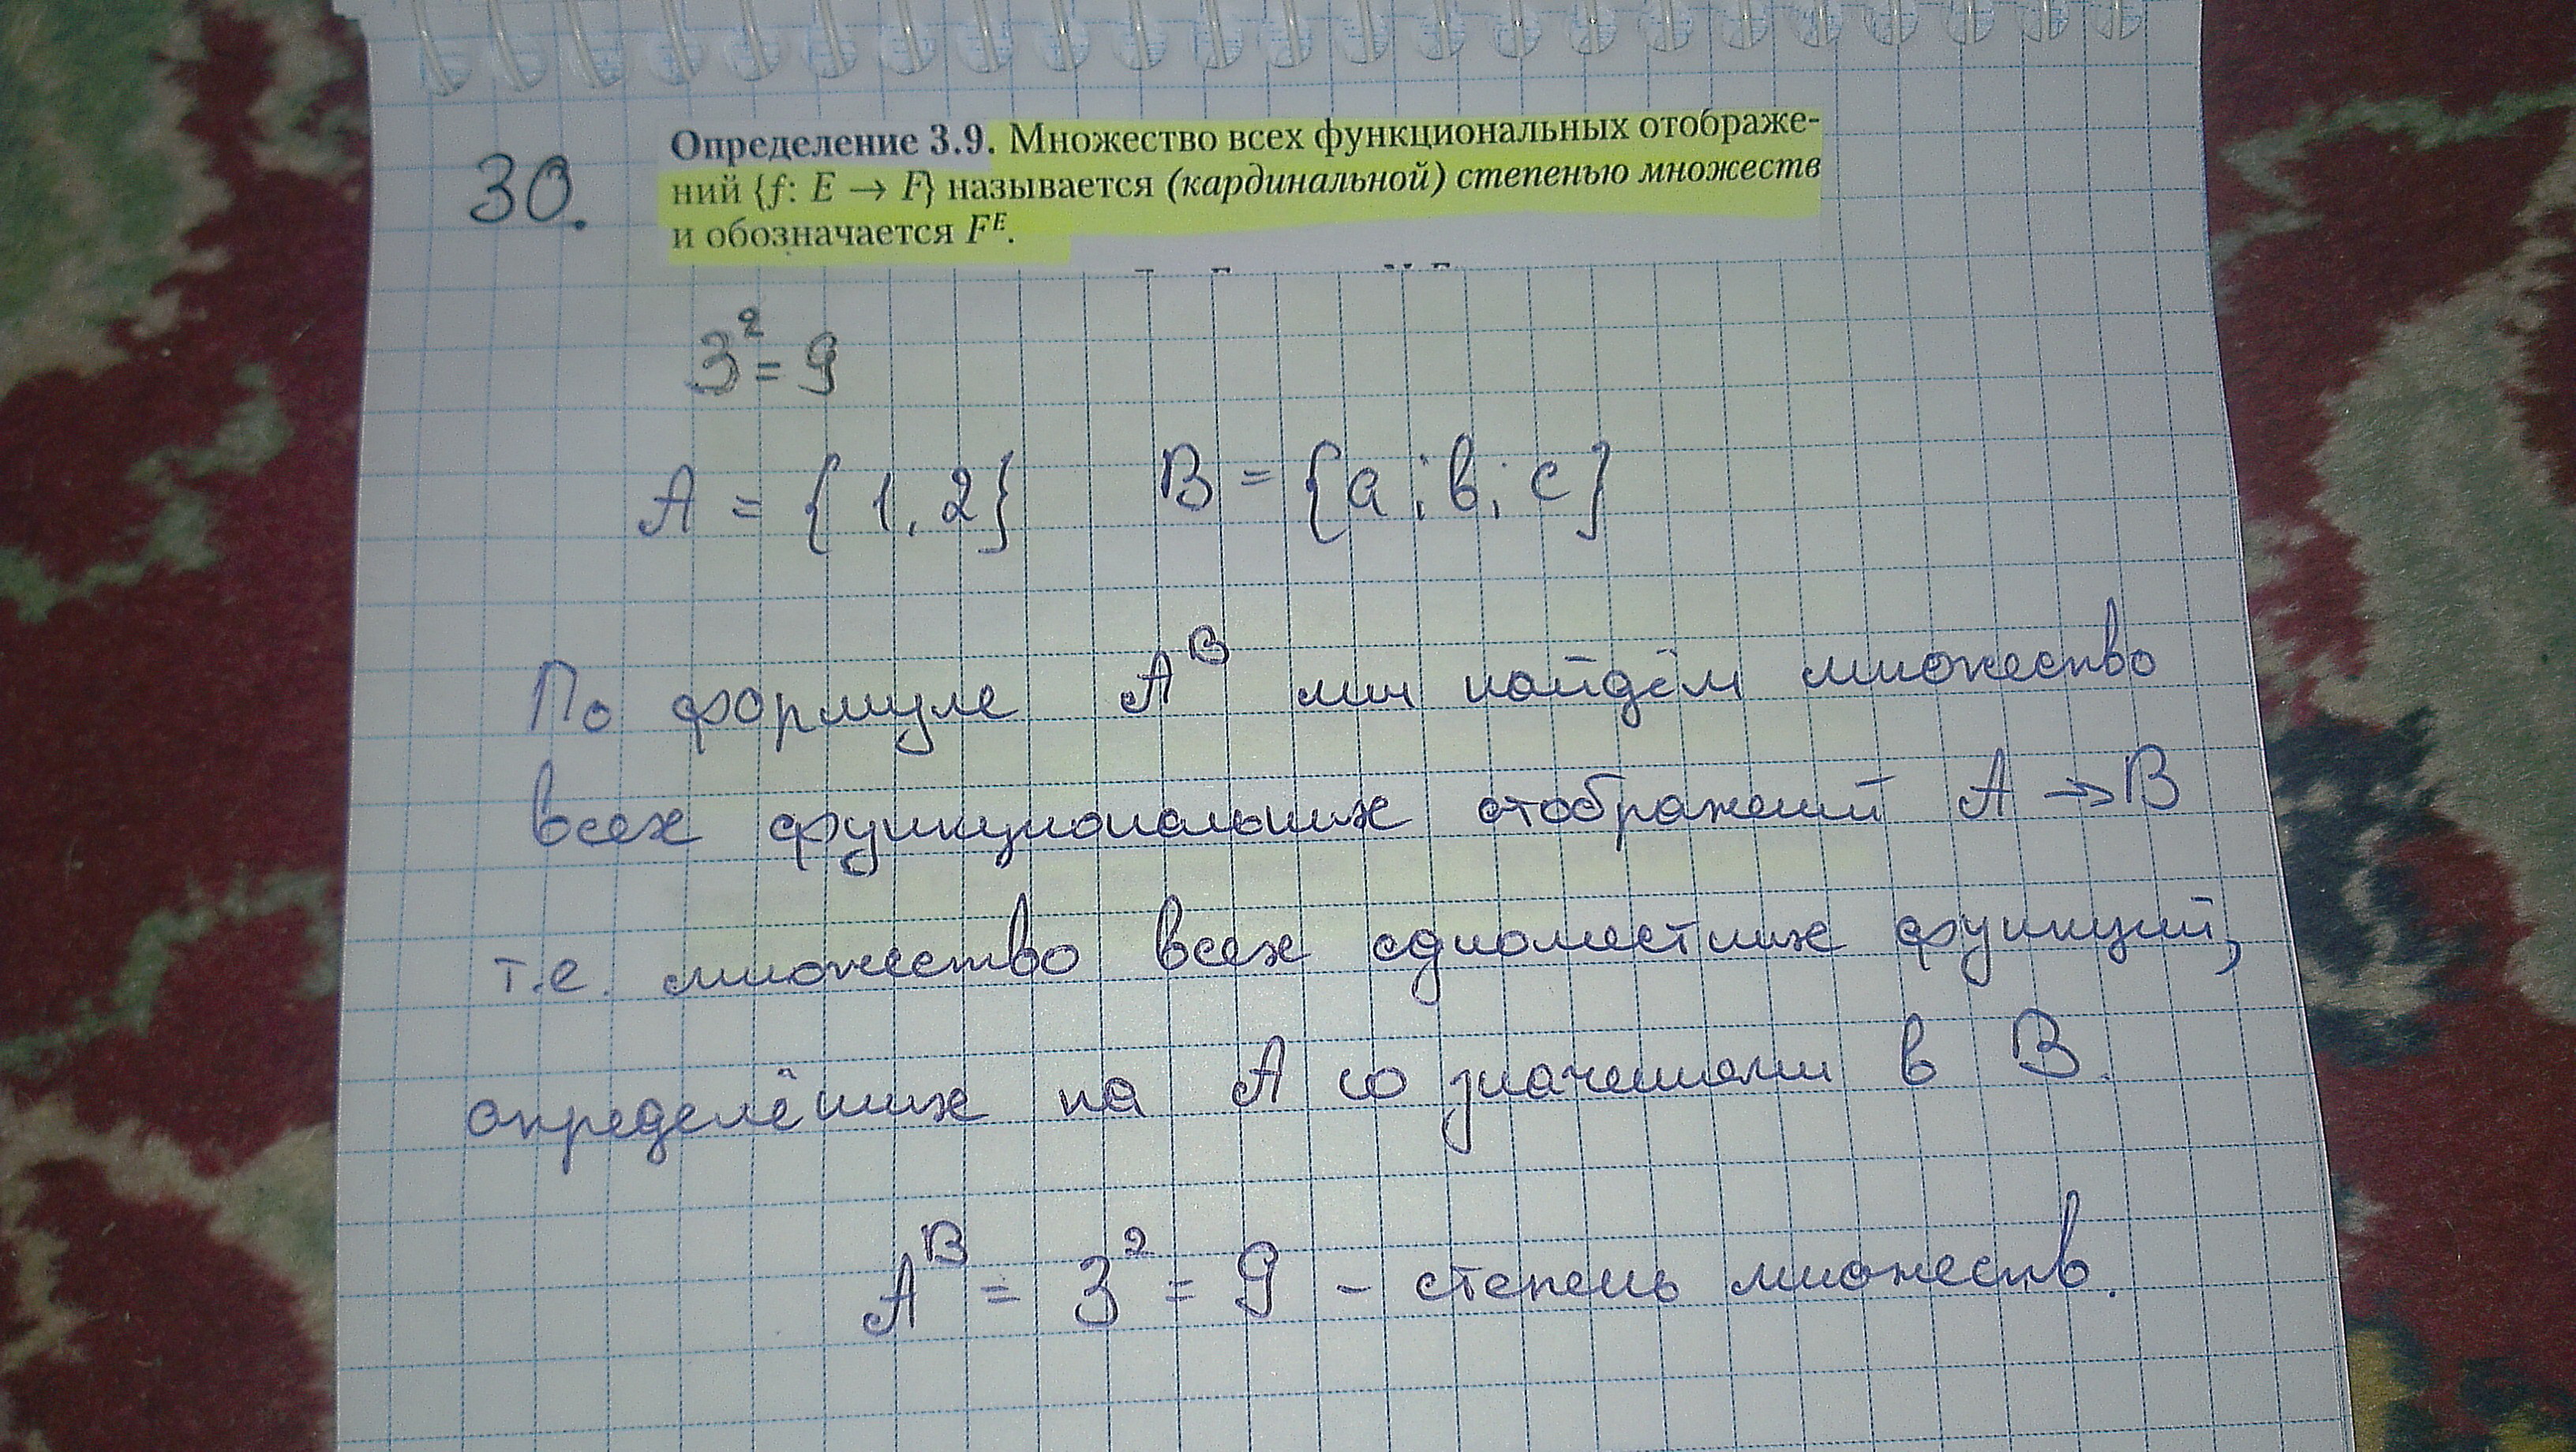 30.
Определение 3.9. Множество всех функциональных отображе-
ний {f: E → F} называется (кардинальной) степенью множеств
и обозначается Fᴱ.
3² = 9
A = { 1, 2} B = {a ; в ; c}
По формуле Aᴮ мы найдём множество
всех функциональных отображений A → B
т.е. множество всех одноместных функций,
определённых на A со значениями в B.
Aᴮ = 3² = 9 - степень множеств.